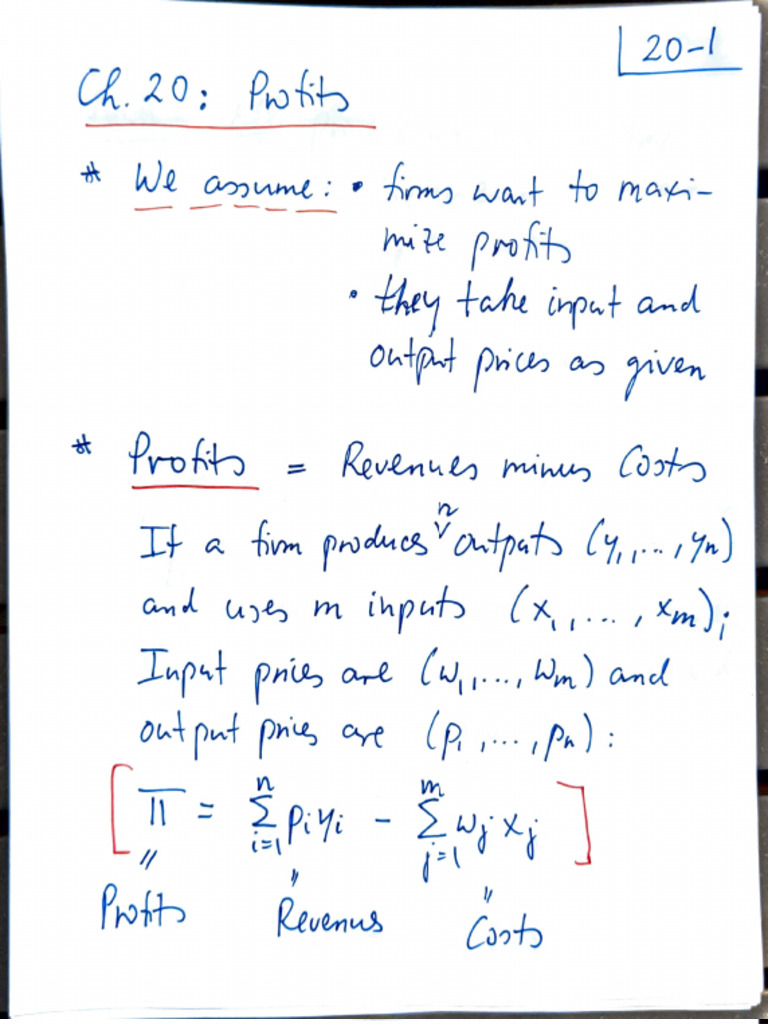 20-1
Ch. 20: Profits
* We assume: • firms want to maxi-
mize profits
• they take input and
output prices as given
* Profits = Revenues minus Costs
If a firm produces n outputs (y₁,...,yn)
and uses m inputs (x₁,...,xm);
Input prices are (w₁,...,wm) and
output prices are (p₁,...,pn):
[π = Σⁿᵢ₌₁ pᵢyᵢ - Σᵐⱼ₌₁ wⱼxⱼ]
" " "
Profits Revenues Costs